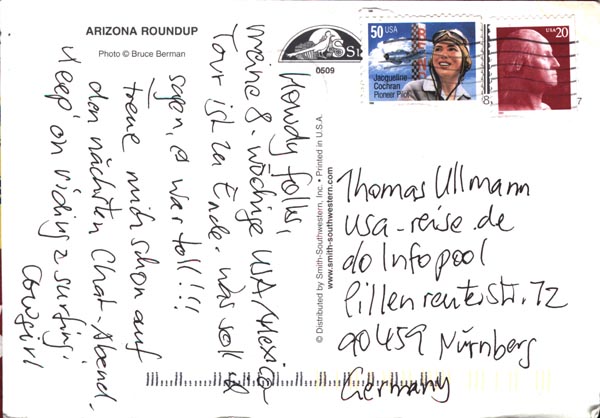 ARIZONA ROUNDUP
Photo © Bruce Berman
0609
50 USA
Jacqueline
Cochran
Pioneer Pilot
USA 20
Howdy folks,
meine 8-wöchige USA/Mexico
Tour ist zu Ende. Was soll ich
sagen, es war toll!!!
Freue mich schon auf
den nächsten Chat-Abend.
Keep on riding & surfing,
Cowgirl
© Distributed by Smith-Southwestern, Inc. • Printed in U.S.A.
www.smith-southwestern.com
Thomas Ullmann
usa-reise.de
c/o Infopool
Pillenreuterstr. 72
90459 Nürnberg
Germany